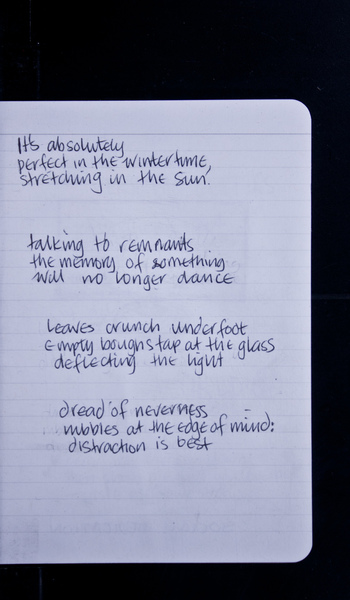 It's absolutely
perfect in the wintertime,
stretching in the sun.
talking to remnants
the memory of something
will no longer dance
leaves crunch underfoot
empty boughs tap at the glass
deflecting the light
dread of neverness
nibbles at the edge of mind:
distraction is best